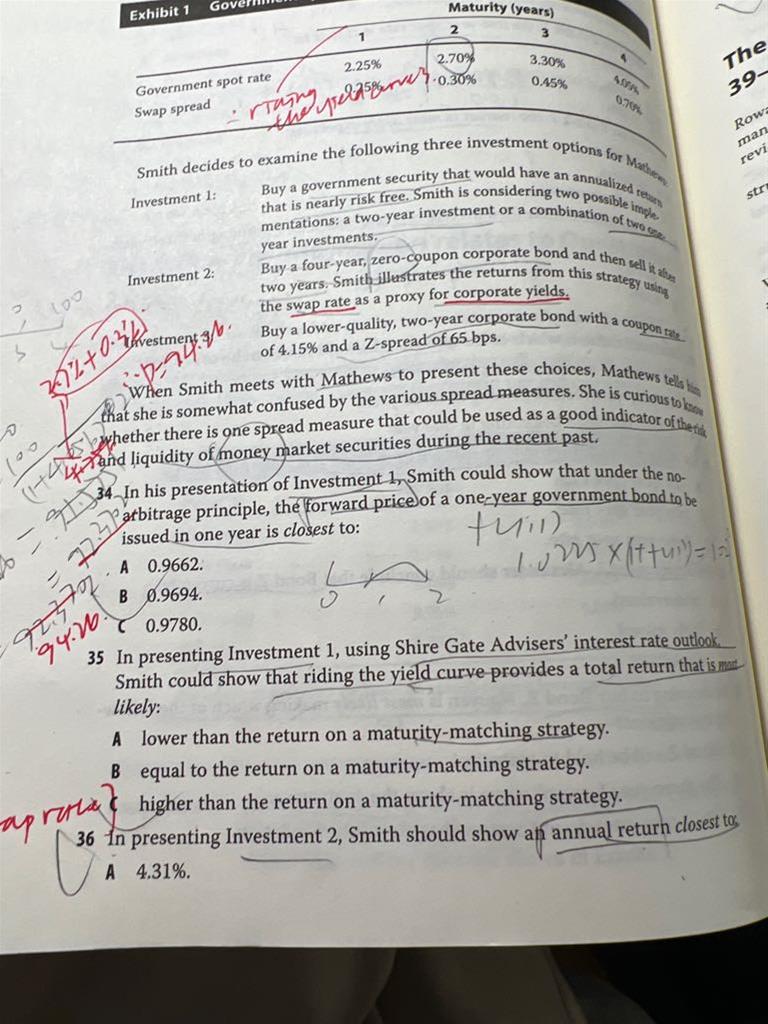 Exhibit 1
Maturity (years)
1 2 3 4
Government spot rate 2.25% 2.70% 3.30% 4.05%
Swap spread 0.25% 0.30% 0.45% 0.70%
∴ rising
the yield curve
Smith decides to examine the following three investment options for Mathews
Investment 1: Buy a government security that would have an annualized return
that is nearly risk free. Smith is considering two possible imple-
mentations: a two-year investment or a combination of two one-
year investments.
Investment 2: Buy a four-year, zero-coupon corporate bond and then sell it after
two years. Smith illustrates the returns from this strategy using
the swap rate as a proxy for corporate yields.
Investment 3: Buy a lower-quality, two-year corporate bond with a coupon rate
of 4.15% and a Z-spread of 65 bps.
When Smith meets with Mathews to present these choices, Mathews tells him
that she is somewhat confused by the various spread measures. She is curious to know
whether there is one spread measure that could be used as a good indicator of the risk
and liquidity of money market securities during the recent past.
34 In his presentation of Investment 1, Smith could show that under the no-
arbitrage principle, the forward price of a one-year government bond to be
issued in one year is closest to:
A 0.9662.
B 0.9694.
C 0.9780.
0 1 2
35 In presenting Investment 1, using Shire Gate Advisers' interest rate outlook,
Smith could show that riding the yield curve provides a total return that is most
likely:
A lower than the return on a maturity-matching strategy.
B equal to the return on a maturity-matching strategy.
C higher than the return on a maturity-matching strategy.
36 In presenting Investment 2, Smith should show an annual return closest to:
A 4.31%.
94.26
The
39–
man
revi